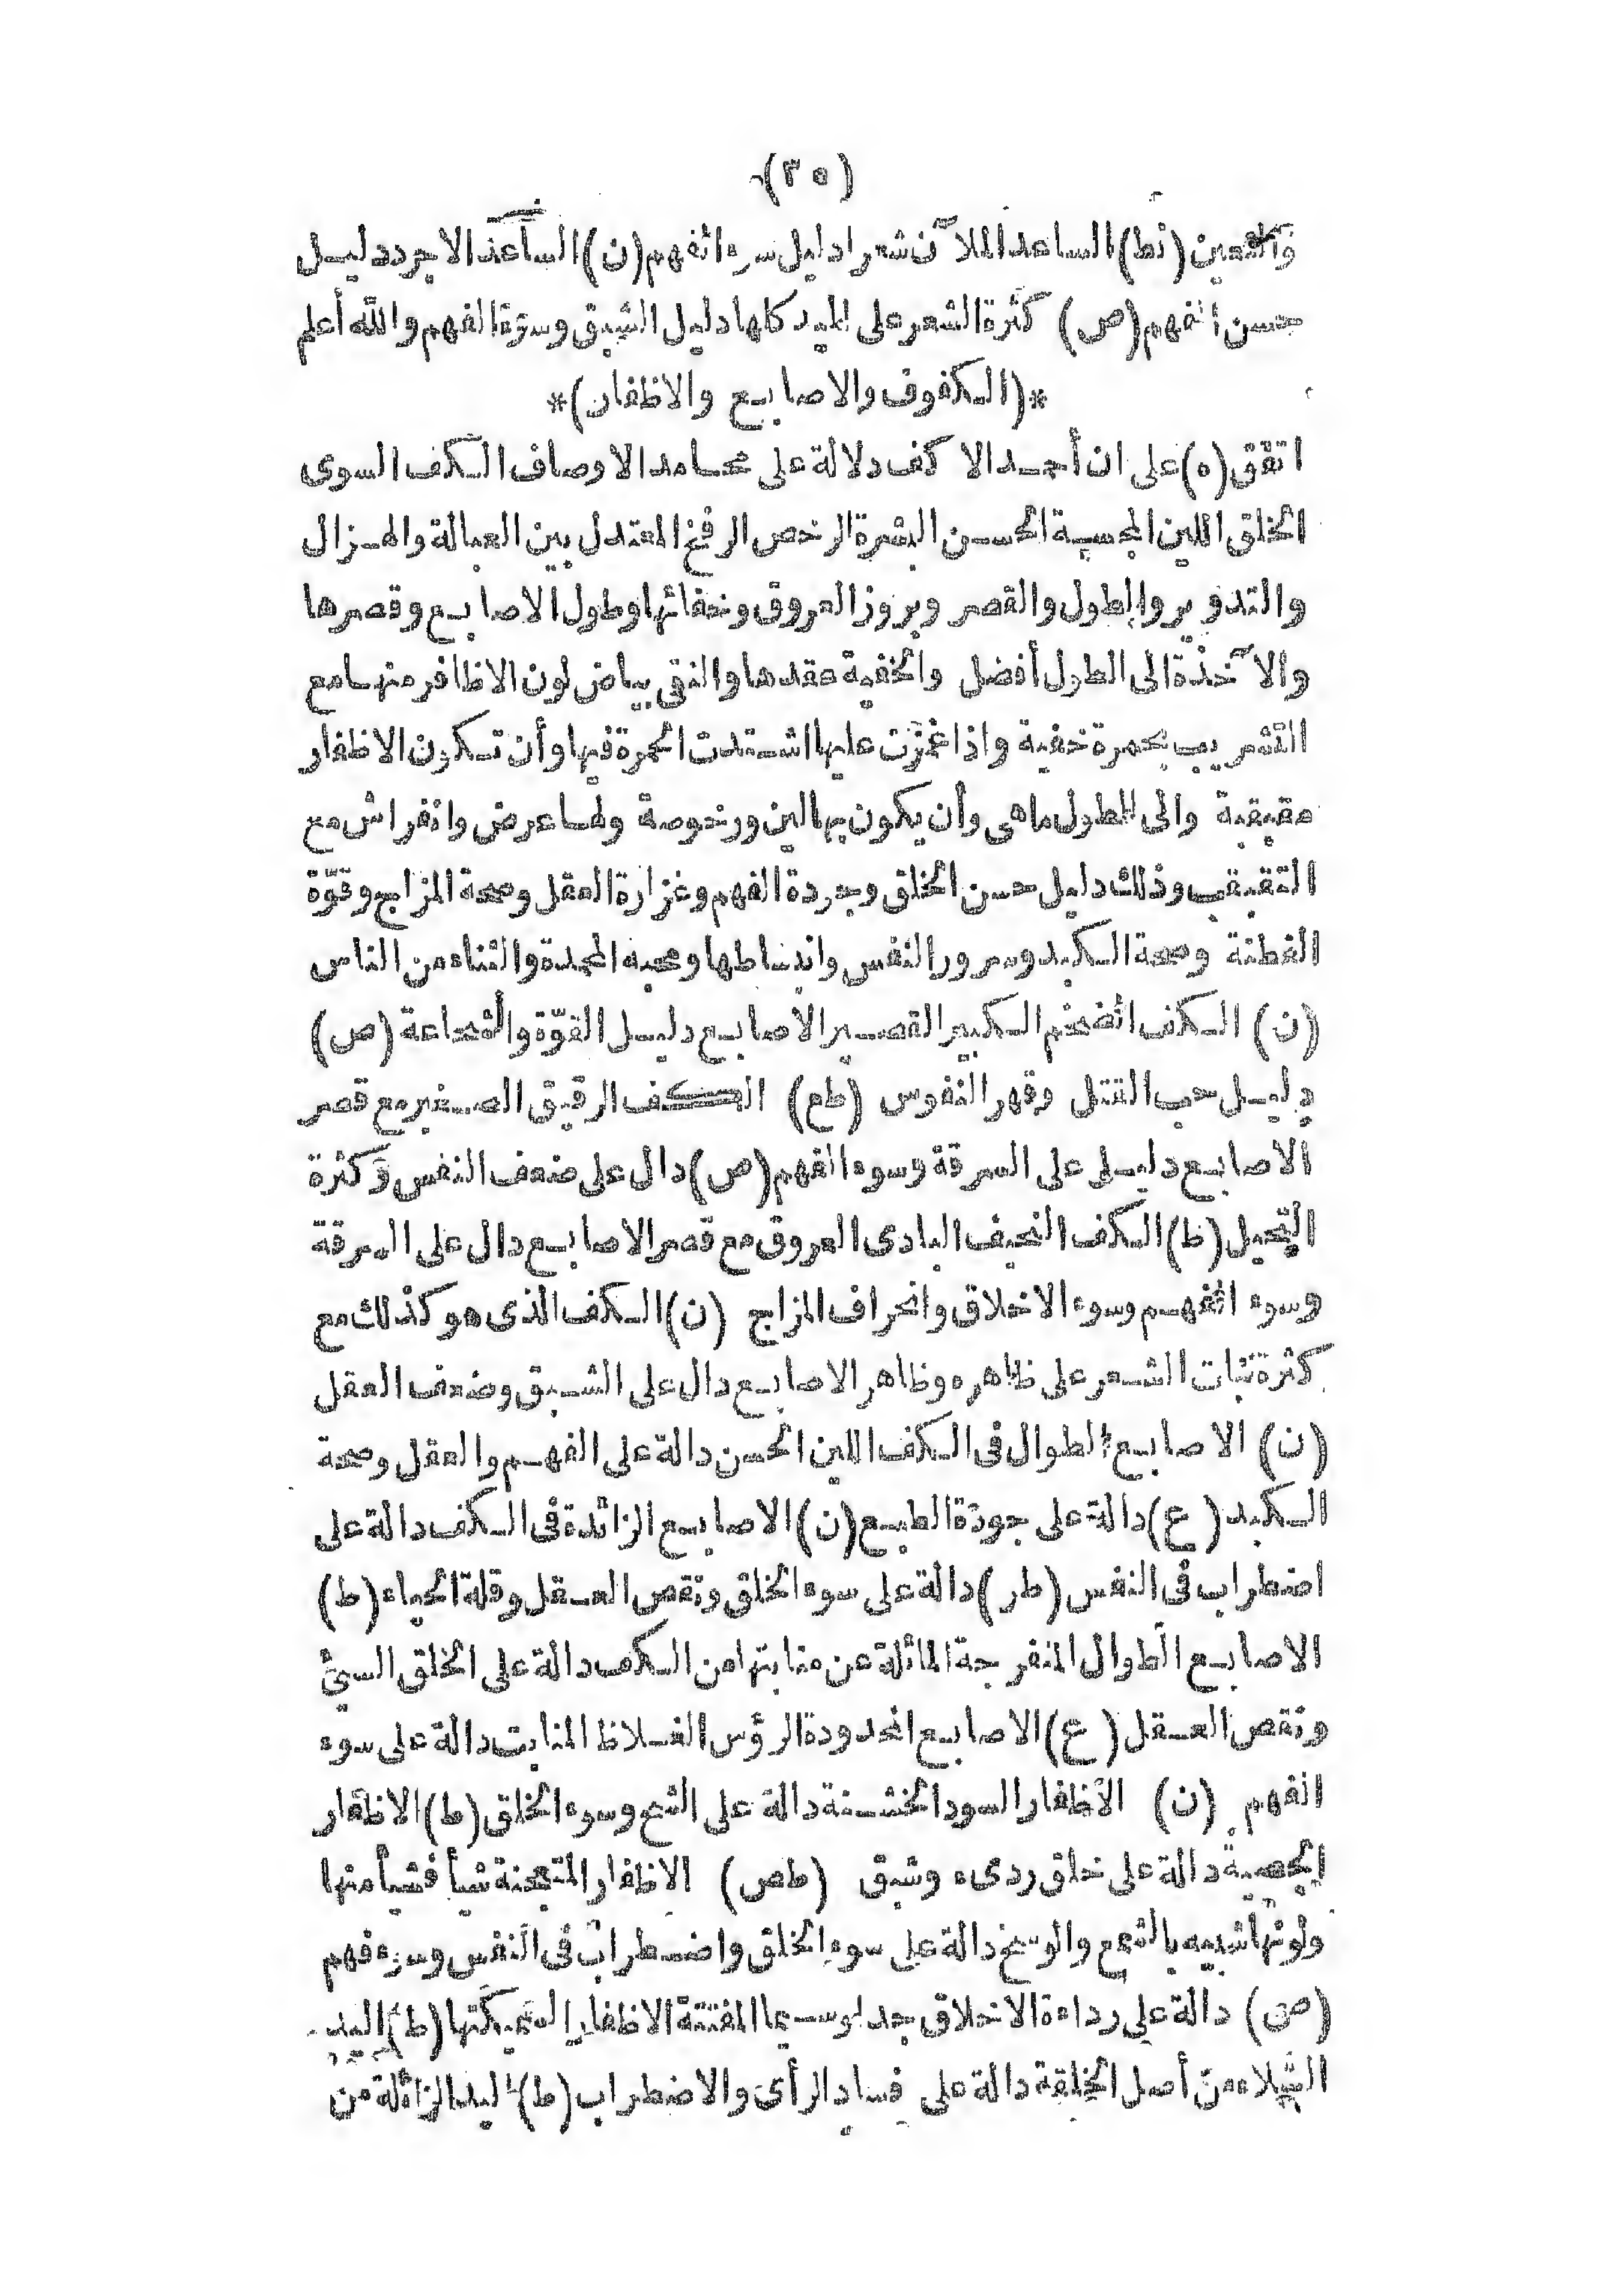 (٣٥)
والتعين (نط) الساعد الملآن شعرا دليل سوء الفهم (ن) الساعد الاجرد دليل
حسن الفهم (ص) كثرة الشعر على اليد كلها دليل الشبق وسوء الفهم والله أعلم
*(الكفوف والاصابع والاظفار)*
اتفق (ه) على ان أحمد الاكف دلالة على محامد الاوصاف الكف السوى
الخلق اللين المجسة الحسن البشرة الرخص الرفغ المعتدل بين العبالة والهزال
والتدوير والطول والقصر وبروز العروق وخفائها وطول الاصابع وقصرها
والآخذة الى الطول أفضل والخفية عقدها والنقى بياض لون الاظافر منها مع
التشريب بحمرة خفية واذا غمزت عليها اشتدت الحمرة فيها وأن تكون الاظفار
مقببة والى الطول ماهى وأن يكون بها لين ورخوصة ولها عرض وانفراش مع
التقبيب وذلك دليل حسن الخلق وجودة الفهم وغزارة العقل وصحة المزاج وقوّة
الفطنة وصحة الكبد وسرور النفس وانبساطها ومحبة المحمدة والثناء من الناس
(ن) الكف الضخم الكبير القصير الاصابع دليل القوّة والشجاعة (ص)
دليل حب القتل وقهر النفوس (طع) الكف الرقيق الصغير مع قصر
الاصابع دليل على السرقة وسوء الفهم (ص) دال على ضعف النفس وكثرة
التحيل (ط) الكف النحيف البادى العروق مع قصر الاصابع دال على السرقة
وسوء الفهم وسوء الاخلاق وانحراف المزاج (ن) الكف الذى هو كذلك مع
كثرة نبات الشعر على ظاهره وظاهر الاصابع دال على الشبق وضعف العقل
(ن) الاصابع الطوال فى الكف اللين الحسن دالة على الفهم والعقل وصحة
الكبد (ع) دالة على جودة الطبع (ن) الاصابع الزائدة فى الكف دالة على
اضطراب فى النفس (طر) دالة على سوء الخلق ونقص العقل وقلة الحياء (ط)
الاصابع الطوال المنفرجة المائلة عن منابتها من الكف دالة على الخلق السيئ
ونقص العقل (ع) الاصابع المحدودة الرؤس الغلاظ المنابت دالة على سوء
الفهم (ن) الاظفار السود الخشنة دالة على الشح وسوء الخلق (ط) الاظفار
الجصية دالة على خلق ردىء وشبق (طص) الاظفار المتعجنة شيأ فشيأ منها
ولونها شبيه بالشمع والوسخ دالة على سوء الخلق واضطراب فى النفس وسوء فهم
(ص) دالة على رداءة الاخلاق جدا وسيما المفتتة الاظفار (ط) اليد
الشلاء من أصل الخلقة دالة على فساد الرأى والاضطراب (ط) اليد الزائلة من